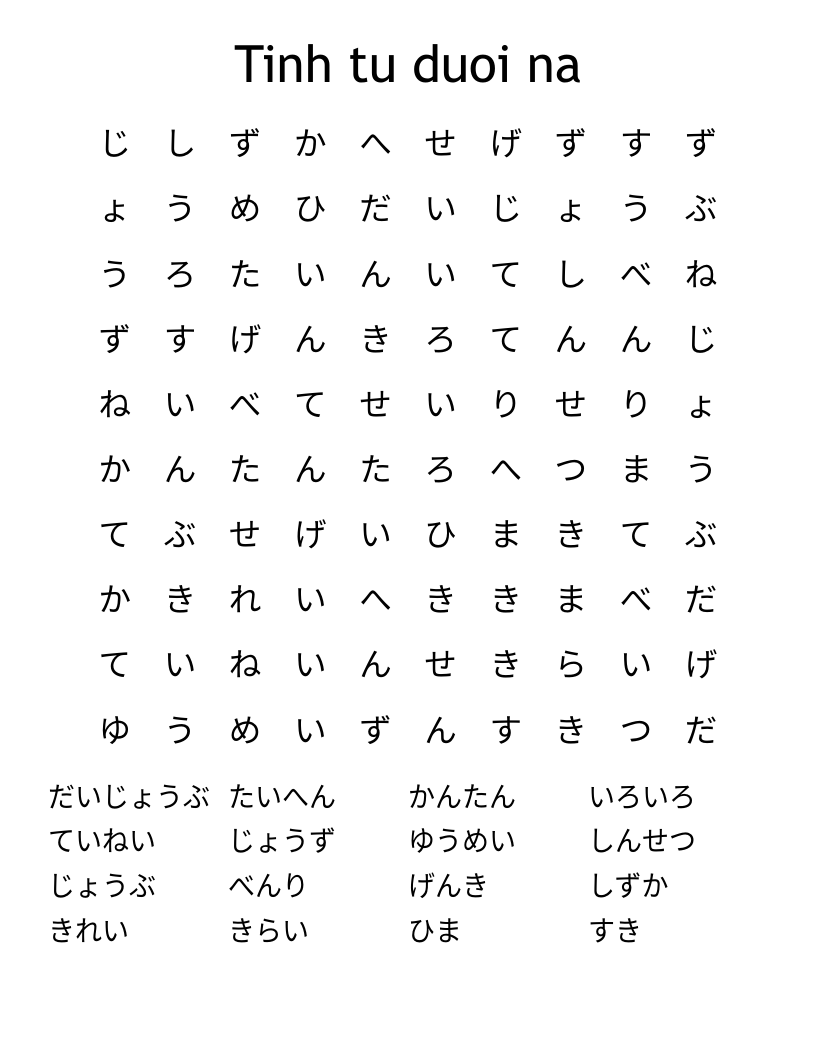 Tinh tu duoi na
じ し ず か へ せ げ ず す ず
ょ う め ひ だ い じ ょ う ぶ
う ろ た い ん い て し べ ね
ず す げ ん き ろ て ん ん じ
ね い べ て せ い り せ り ょ
か ん た ん た ろ へ つ ま う
て ぶ せ げ い ひ ま き て ぶ
か き れ い へ き き ま べ だ
て い ね い ん せ き ら い げ
ゆ う め い ず ん す き つ だ
だいじょうぶ たいへん かんたん いろいろ
ていねい じょうず ゆうめい しんせつ
じょうぶ べんり げんき しずか
きれい きらい ひま すき